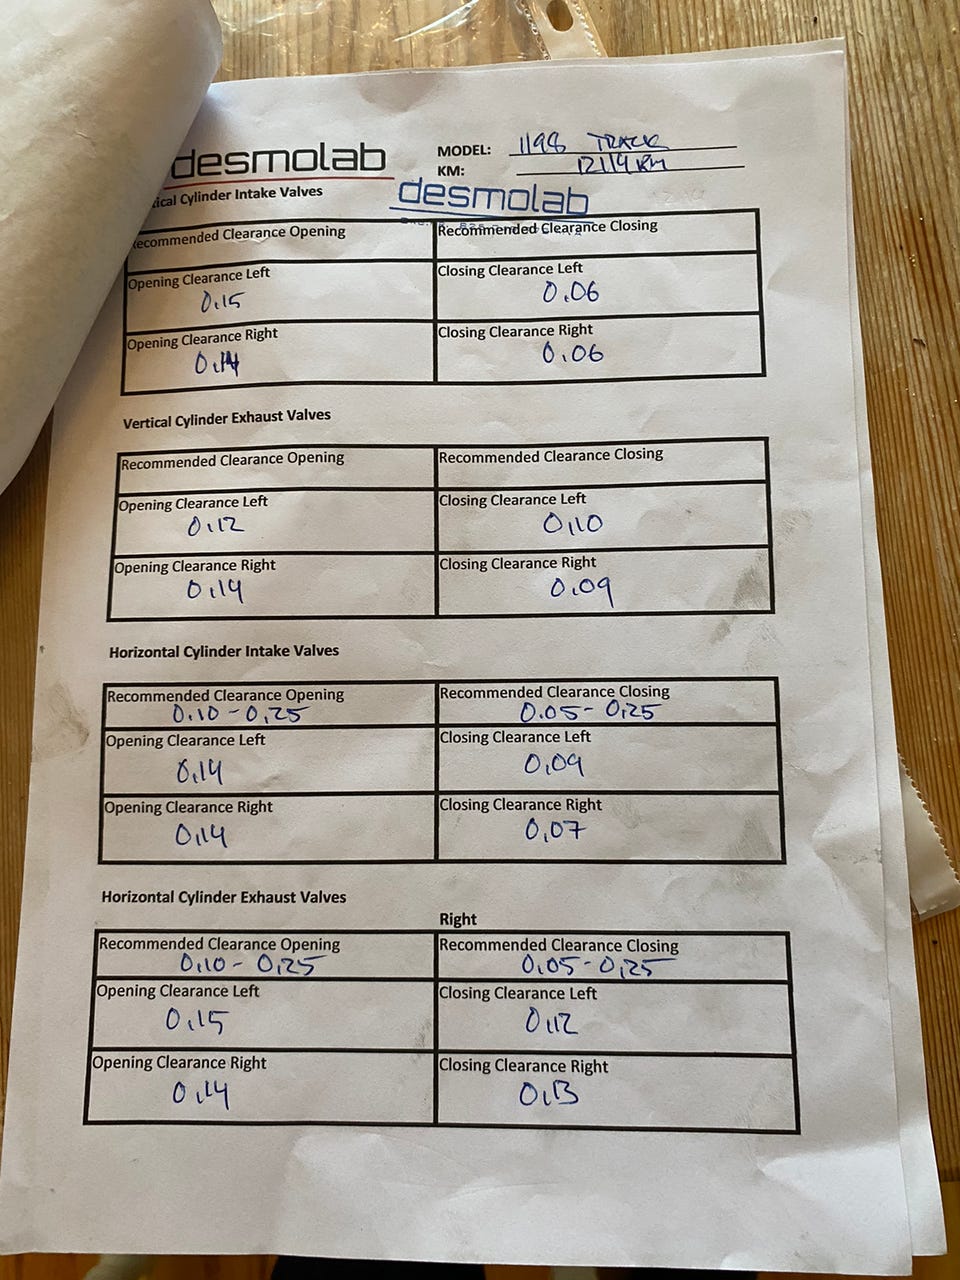 desmolab
MODEL: 1198 TRACK
KM: 12114 KM
desmolab
ical Cylinder Intake Valves
ecommended Clearance Opening Recommended Clearance Closing
Opening Clearance Left Closing Clearance Left
0.15 0.06
Opening Clearance Right Closing Clearance Right
0.14 0.06
Vertical Cylinder Exhaust Valves
Recommended Clearance Opening Recommended Clearance Closing
Opening Clearance Left Closing Clearance Left
0,12 0,10
Opening Clearance Right Closing Clearance Right
0,14 0,09
Horizontal Cylinder Intake Valves
Recommended Clearance Opening Recommended Clearance Closing
0.10 - 0,25 0.05 - 0,25
Opening Clearance Left Closing Clearance Left
0,14 0,09
Opening Clearance Right Closing Clearance Right
0,14 0,07
Horizontal Cylinder Exhaust Valves
Right
Recommended Clearance Opening Recommended Clearance Closing
0,10 - 0,25 0,05 - 0,25
Opening Clearance Left Closing Clearance Left
0,15 0,12
Opening Clearance Right Closing Clearance Right
0,14 0,13